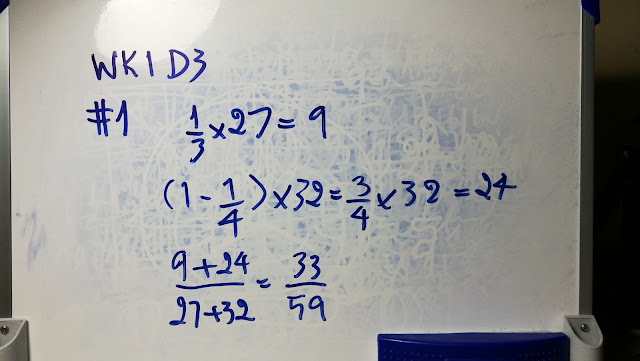 WK1 D3
#1 1/3 × 27 = 9
(1 - 1/4) × 32 = 3/4 × 32 = 24
9+24/27+32 = 33/59